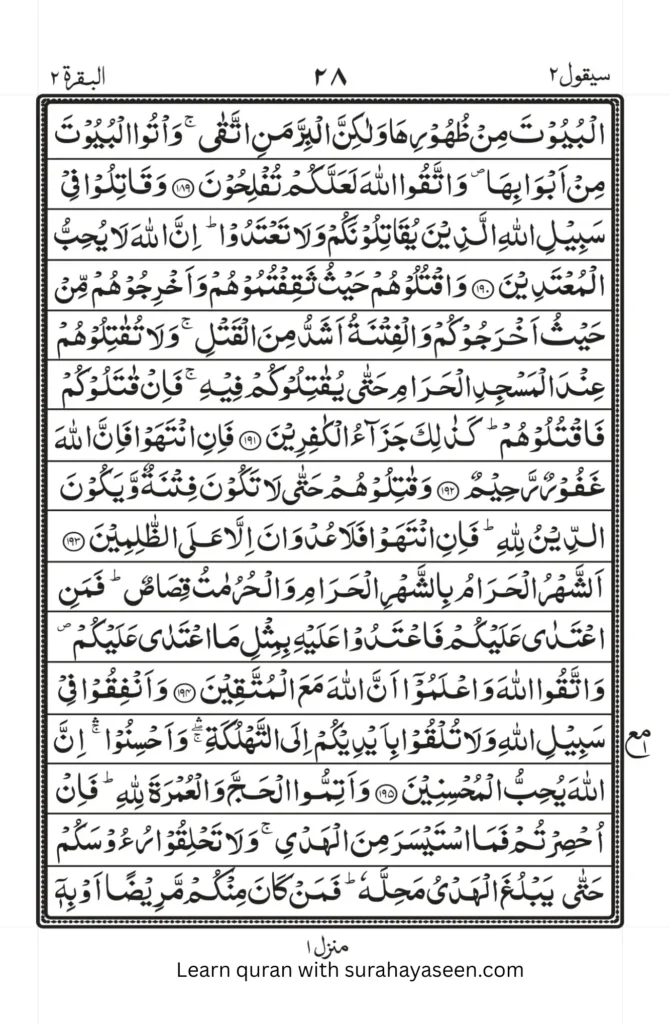 سيقول ٢ ٢٨ البقرة ٢
الْبُيُوْتَ مِنْ ظُهُوْرِهَا وَلٰكِنَّ الْبِرَّ مَنِ اتَّقٰى ۚ وَاْتُوا الْبُيُوْتَ
مِنْ اَبْوَابِهَا ۪ وَاتَّقُوا اللّٰهَ لَعَلَّكُمْ تُفْلِحُوْنَ ﴿١٨٩﴾ وَقَاتِلُوْا فِيْ
سَبِيْلِ اللّٰهِ الَّذِيْنَ يُقَاتِلُوْنَكُمْ وَلَا تَعْتَدُوْا ؕ اِنَّ اللّٰهَ لَا يُحِبُّ
الْمُعْتَدِيْنَ ﴿١٩٠﴾ وَاقْتُلُوْهُمْ حَيْثُ ثَقِفْتُمُوْهُمْ وَاَخْرِجُوْهُمْ مِّنْ
حَيْثُ اَخْرَجُوْكُمْ وَالْفِتْنَةُ اَشَدُّ مِنَ الْقَتْلِ ۚ وَلَا تُقٰتِلُوْهُمْ
عِنْدَ الْمَسْجِدِ الْحَرَامِ حَتّٰى يُقٰتِلُوْكُمْ فِيْهِ ۚ فَاِنْ قٰتَلُوْكُمْ
فَاقْتُلُوْهُمْ ؕ كَذٰلِكَ جَزَآءُ الْكٰفِرِيْنَ ﴿١٩١﴾ فَاِنِ انْتَهَوْا فَاِنَّ اللّٰهَ
غَفُوْرٌ رَّحِيْمٌ ﴿١٩٢﴾ وَقٰتِلُوْهُمْ حَتّٰى لَا تَكُوْنَ فِتْنَةٌ وَّيَكُوْنَ
الدِّيْنُ لِلّٰهِ ؕ فَاِنِ انْتَهَوْا فَلَا عُدْوَانَ اِلَّا عَلَى الظّٰلِمِيْنَ ﴿١٩٣﴾
اَلشَّهْرُ الْحَرَامُ بِالشَّهْرِ الْحَرَامِ وَالْحُرُمٰتُ قِصَاصٌ ؕ فَمَنِ
اعْتَدٰى عَلَيْكُمْ فَاعْتَدُوْا عَلَيْهِ بِمِثْلِ مَا اعْتَدٰى عَلَيْكُمْ ۪
وَاتَّقُوا اللّٰهَ وَاعْلَمُوْۤا اَنَّ اللّٰهَ مَعَ الْمُتَّقِيْنَ ﴿١٩٤﴾ وَاَنْفِقُوْا فِيْ
سَبِيْلِ اللّٰهِ وَلَا تُلْقُوْا بِاَيْدِيْكُمْ اِلَى التَّهْلُكَةِ ۛۚ وَاَحْسِنُوْا ۛۚ اِنَّ
مع ١
اللّٰهَ يُحِبُّ الْمُحْسِنِيْنَ ﴿١٩٥﴾ وَاَتِمُّوا الْحَجَّ وَالْعُمْرَةَ لِلّٰهِ ؕ فَاِنْ
اُحْصِرْتُمْ فَمَا اسْتَيْسَرَ مِنَ الْهَدْيِ ۚ وَلَا تَحْلِقُوْا رُءُوْسَكُمْ
حَتّٰى يَبْلُغَ الْهَدْيُ مَحِلَّهٗ ؕ فَمَنْ كَانَ مِنْكُمْ مَّرِيْضًا اَوْ بِهٖۤ
منزل ١
Learn quran with surahayaseen.com